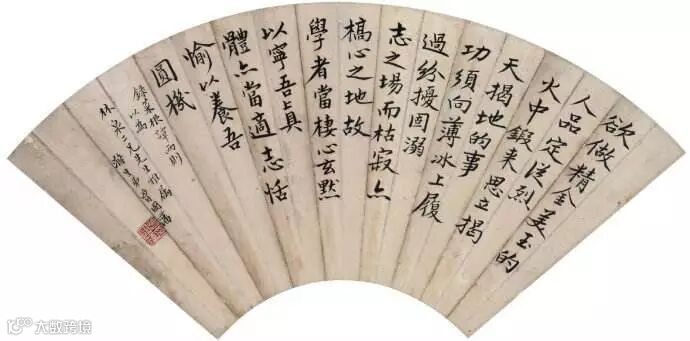 欲做精金美玉的
人品定從烈
火中鍛來思立揭
天揭地的事
功須向薄冰上履
過紛擾固溺
志之場而枯寂亦
槁心之地故
學者當棲心玄默
以寧吾真
體亦當適志恬
愉以養吾
圓機
錄菜根譚兩則
以為
林泉二兄先生雅屬
滌生弟曾國藩
大数跨境